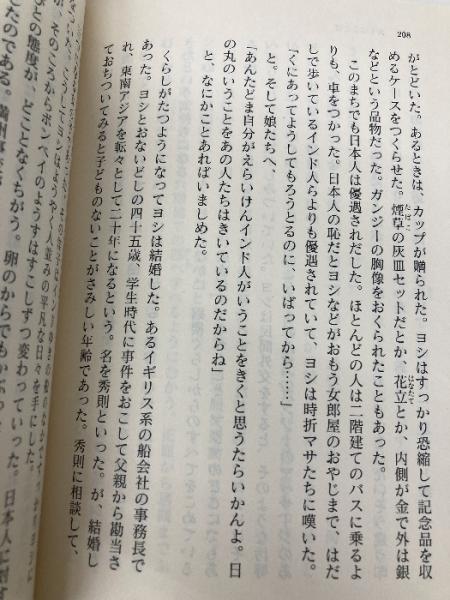 208
がとどいた。あるときは、カップが贈られた。ヨシはすっかり恐縮して記念品を収
めるケースをつくらせた。煙草の灰皿セットだとか、花立とか、内側が金で外は銀
などという品物だった。ガンジーの胸像をおくられたこともあった。
このまちでも日本人は優遇されだした。ほとんどの人は二階建てのバスに乗るよ
りも、車をつかった。日本人の恥だとヨシなどがおもう女郎屋のおやじまで、はだ
しで歩いているインド人らよりも優遇されていて、ヨシは時折マサたちに嘆いた。
「くにあってようしてもろうとるのに、いばってから……」
と、そして娘たちへ、
「あんたどま自分がえらいけんインド人がいうことをきくと思うたらいかんよ。日
の丸のいうことをあの人たちはきいているのだからね」
と、なにかことあればいましめた。
くらしがたつようになってヨシは結婚した。あるイギリス系の船会社の事務長で
あった。ヨシとおないどしの四十五歳、学生時代に事件をおこして父親から勘当さ
れ、東南アジアを転々として二十年になるという。名を秀則といった。が、結婚し
ておちついてみると子どものないことがさみしい年齢であった。秀則に相談して、
ヨシはようやく人並みの平凡な日々を手にした。
そのころからボンベイのようすはすこしずつ変わっていった。日本人に
びとの態度が、どことなくちがう。卵のからでもかぶっ
たのである。満州事変